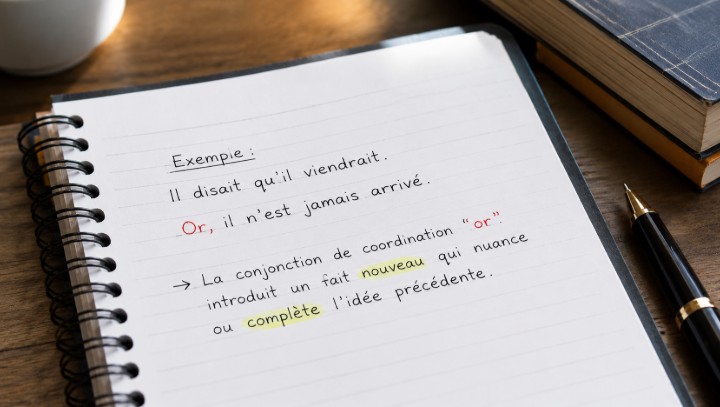 Exemple :
Il disait qu'il viendrait.
Or, il n'est jamais arrivé.
→ La conjonction de coordination "or"
introduit un fait nouveau qui nuance
ou complète l'idée précédente.